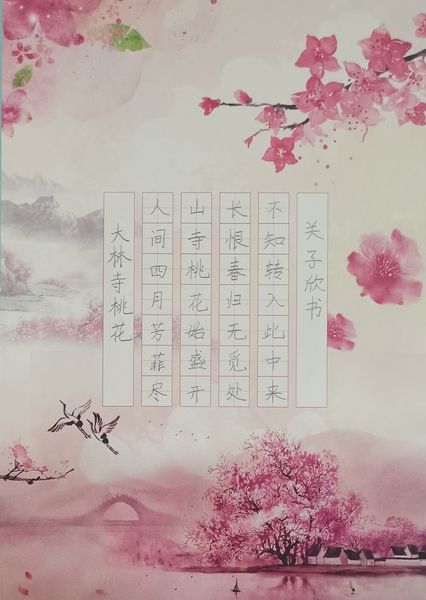 大林寺桃花
人间四月芳菲尽
山寺桃花始盛开
长恨春归无觅处
不知转入此中来
关子欣书